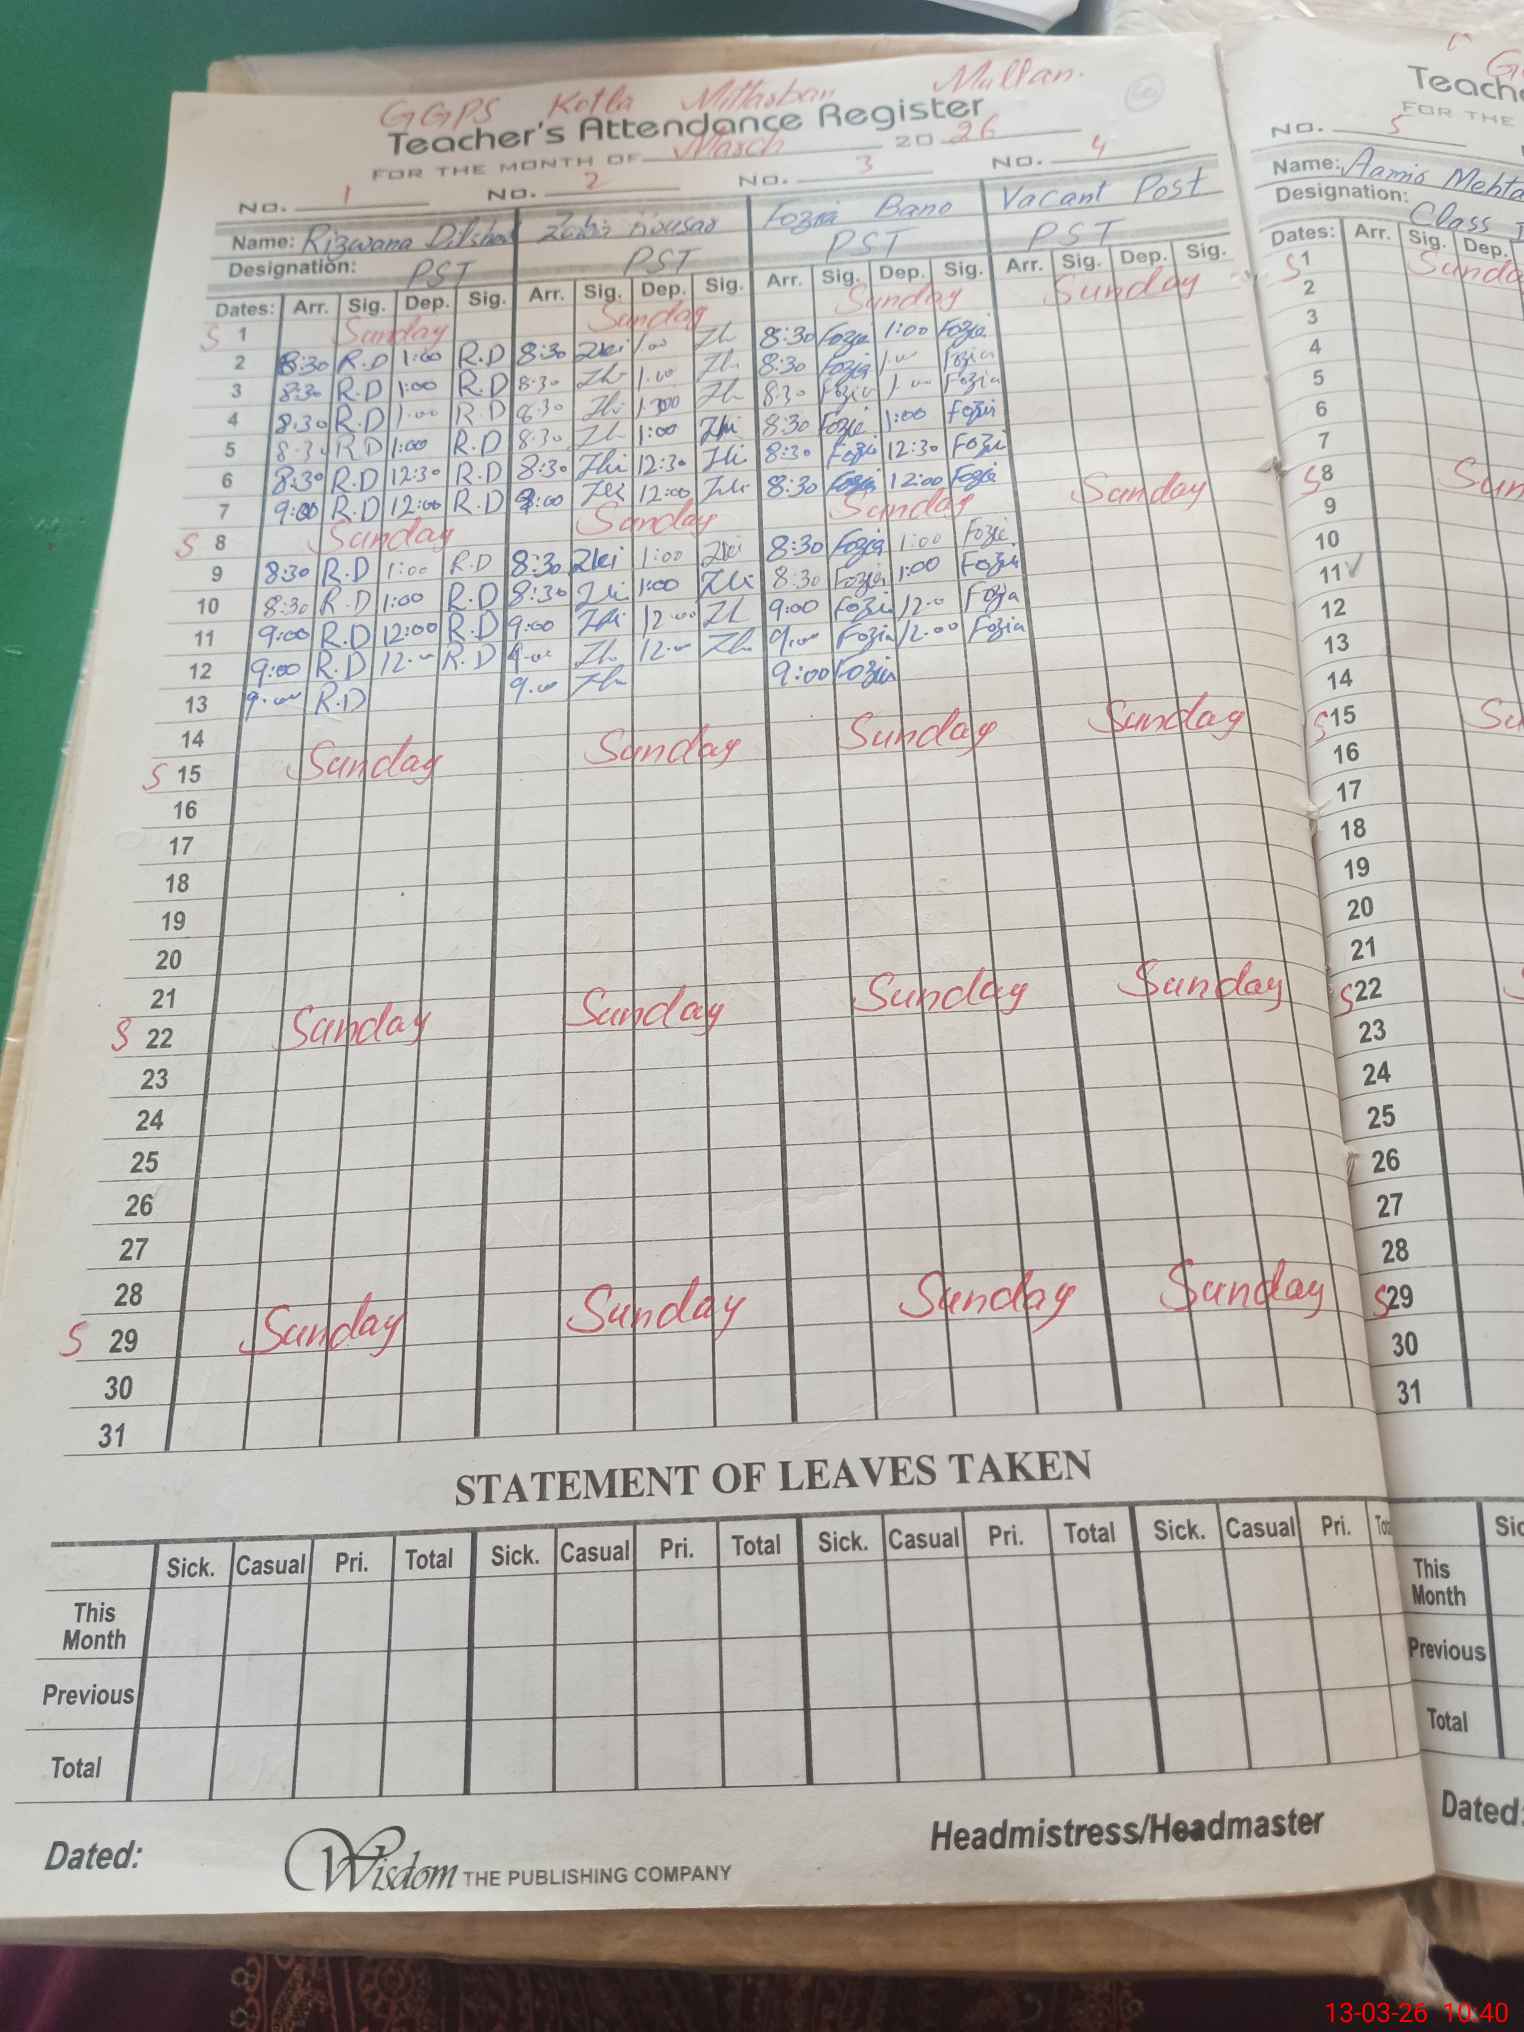 GGPS Kotla Mithasban Multan.
Teacher's Attendance Register
FOR THE MONTH OF March 2026
No. 1 No. 2 No. 3 No. 4
Name: Rizwana Fozia Bano Vacant Post
Designation: PST PST PST PST
Dates: Arr. Sig. Dep. Sig. Arr. Sig. Dep. Sig. Arr. Sig. Dep. Sig. Arr. Sig. Dep. Sig.
S 1 Sunday Sunday Sunday Sunday
2 8:30 R.D 1:00 R.D 8:30 1:00 8:30 Fozia 1:00 Fozia
3 8:30 R.D 1:00 R.D 8:30 1:00 8:30 Fozia 1:00 Fozia
4 8:30 R.D 1:00 R.D 8:30 8:30 Fozia 1:00 Fozia
5 8:30 R.D 1:00 R.D 8:30 1:00 8:30 Fozia 1:00 Fozia
6 8:30 R.D 12:30 R.D 8:30 12:30 8:30 Fozia 12:30 Fozia
7 9:00 R.D 12:00 R.D 9:00 12:00 8:30 Fozia 12:00 Fozia
S 8 Sunday Sunday Sunday Sunday
9 8:30 R.D 1:00 R.D 8:30 1:00 8:30 Fozia 1:00 Fozia
10 8:30 R.D 1:00 R.D 8:30 1:00 8:30 Fozia 1:00 Fozia
11 9:00 R.D 12:00 R.D 9:00 12:00 9:00 Fozia 12:00 Fozia
12 9:00 R.D 12:00 R.D 9:00 12:00 9:00 Fozia 12:00 Fozia
13 9:00 R.D 9:00 9:00 Fozia
14
S 15 Sunday Sunday Sunday Sunday
16
17
18
19
20
21
S 22 Sunday Sunday Sunday Sunday
23
24
25
26
27
28
S 29 Sunday Sunday Sunday Sunday
30
31
STATEMENT OF LEAVES TAKEN
Sick. Casual Pri. Total Sick. Casual Pri. Total Sick. Casual Pri. Total Sick. Casual Pri.
This Month
Previous
Total
Dated:
Wisdom THE PUBLISHING COMPANY
Headmistress/Headmaster
FOR THE
No. 5
Name: Aamir
Designation: Class
Dates: Arr. Sig. Dep.
S 1
2
3
4
5
6
7
S 8
9
10
11
12
13
14
S 15
16
17
18
19
20
21
S 22
23
24
25
26
27
28
S 29
30
31
This Month
Previous
Total
Dated:
13-03-26 10:40